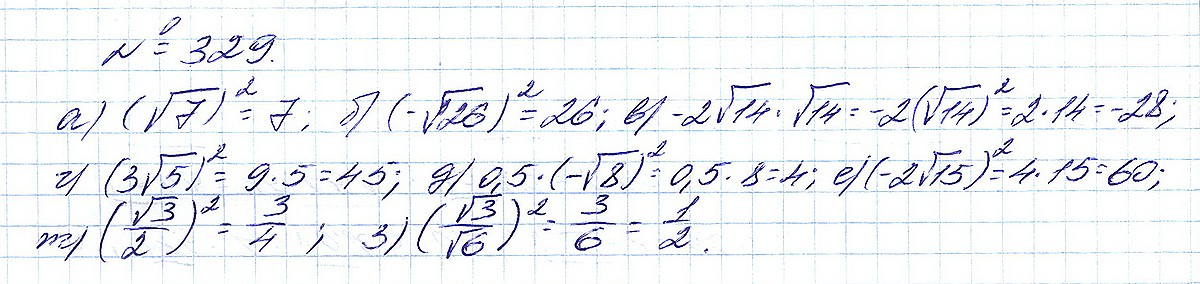 № 329.
а) (√7)² = 7; б) (-√26)² = 26; в) -2√14 · √14 = -2(√14)² = 2 · 14 = -28;
г) (3√5)² = 9 · 5 = 45; д) 0,5 · (-√8)² = 0,5 · 8 = 4; е) (-2√15)² = 4 · 15 = 60;
ж) (√3/2)² = 3/4; з) (√3/√6)² = 3/6 = 1/2.